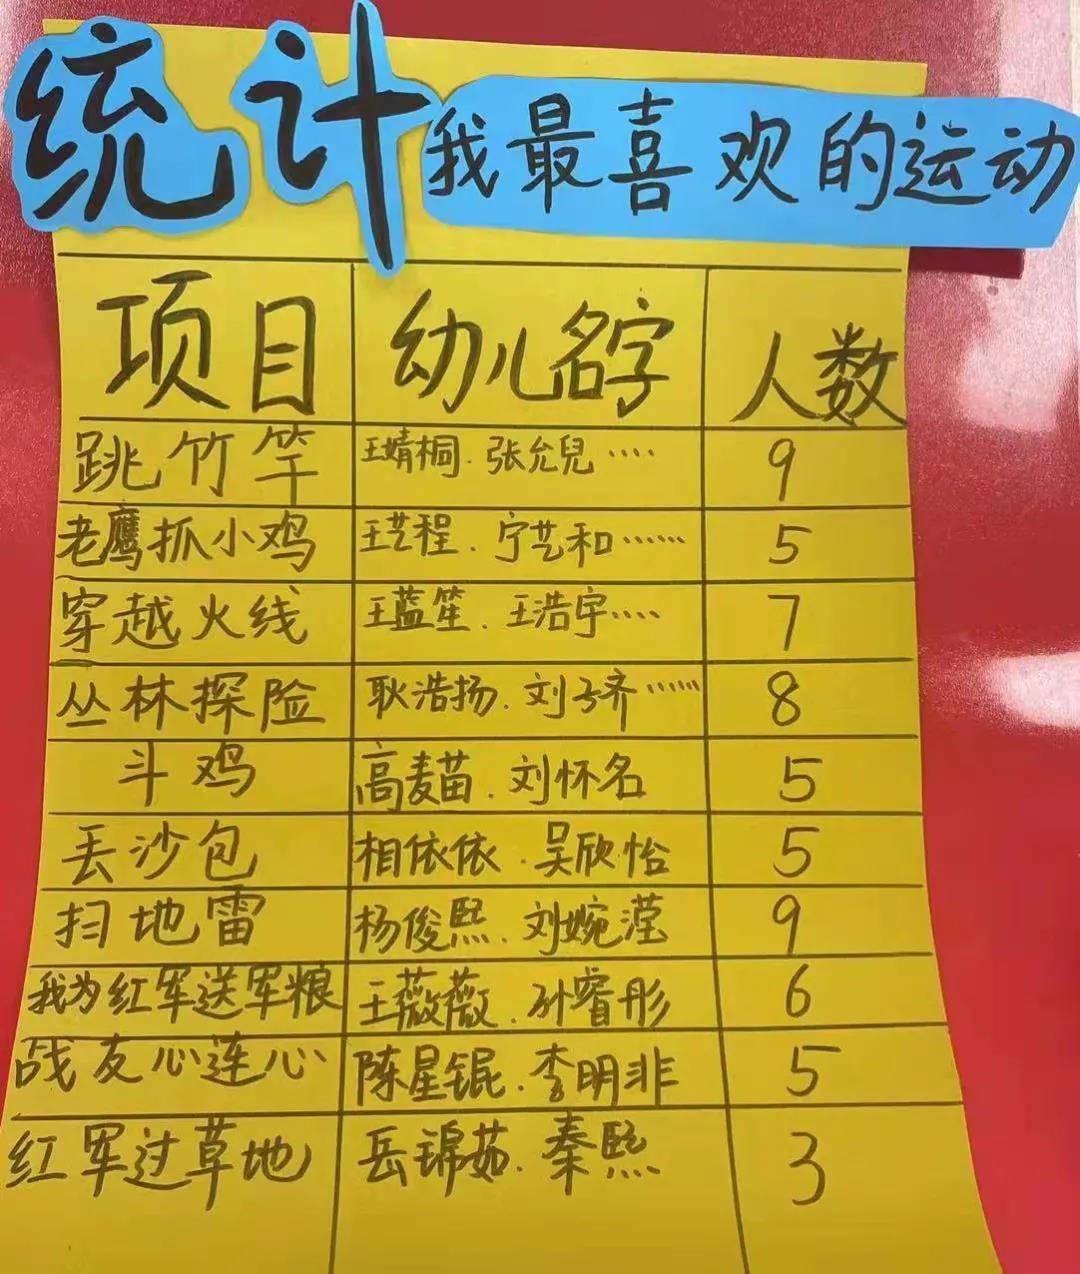 统计 我最喜欢的运动
项目 幼儿名字 人数
跳竹竿 王婧桐.张允兒···· 9
老鹰抓小鸡 王艺程.宁艺和······ 5
穿越火线 王蓝笙.王浩宇···· 7
丛林探险 耿浩扬.刘子齐······ 8
斗鸡 高麦苗.刘怀名 5
丢沙包 相依依.吴欣怡 5
扫地雷 杨俊熙.刘婉滢 9
我为红军送军粮 王薇薇.孙睿彤 6
战友心连心 陈星锟.李明非 5
红军过草地 岳锦茹.秦熙 3